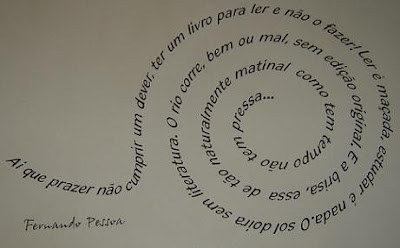 Ai que prazer não cumprir um dever, ter um livro para ler e não o fazer! Ler é maçada, estudar é nada. O sol doira sem literatura. O rio corre, bem ou mal, sem edição original. E a brisa, essa de tão naturalmente matinal como tem tempo não tem pressa...
Fernando Pessoa